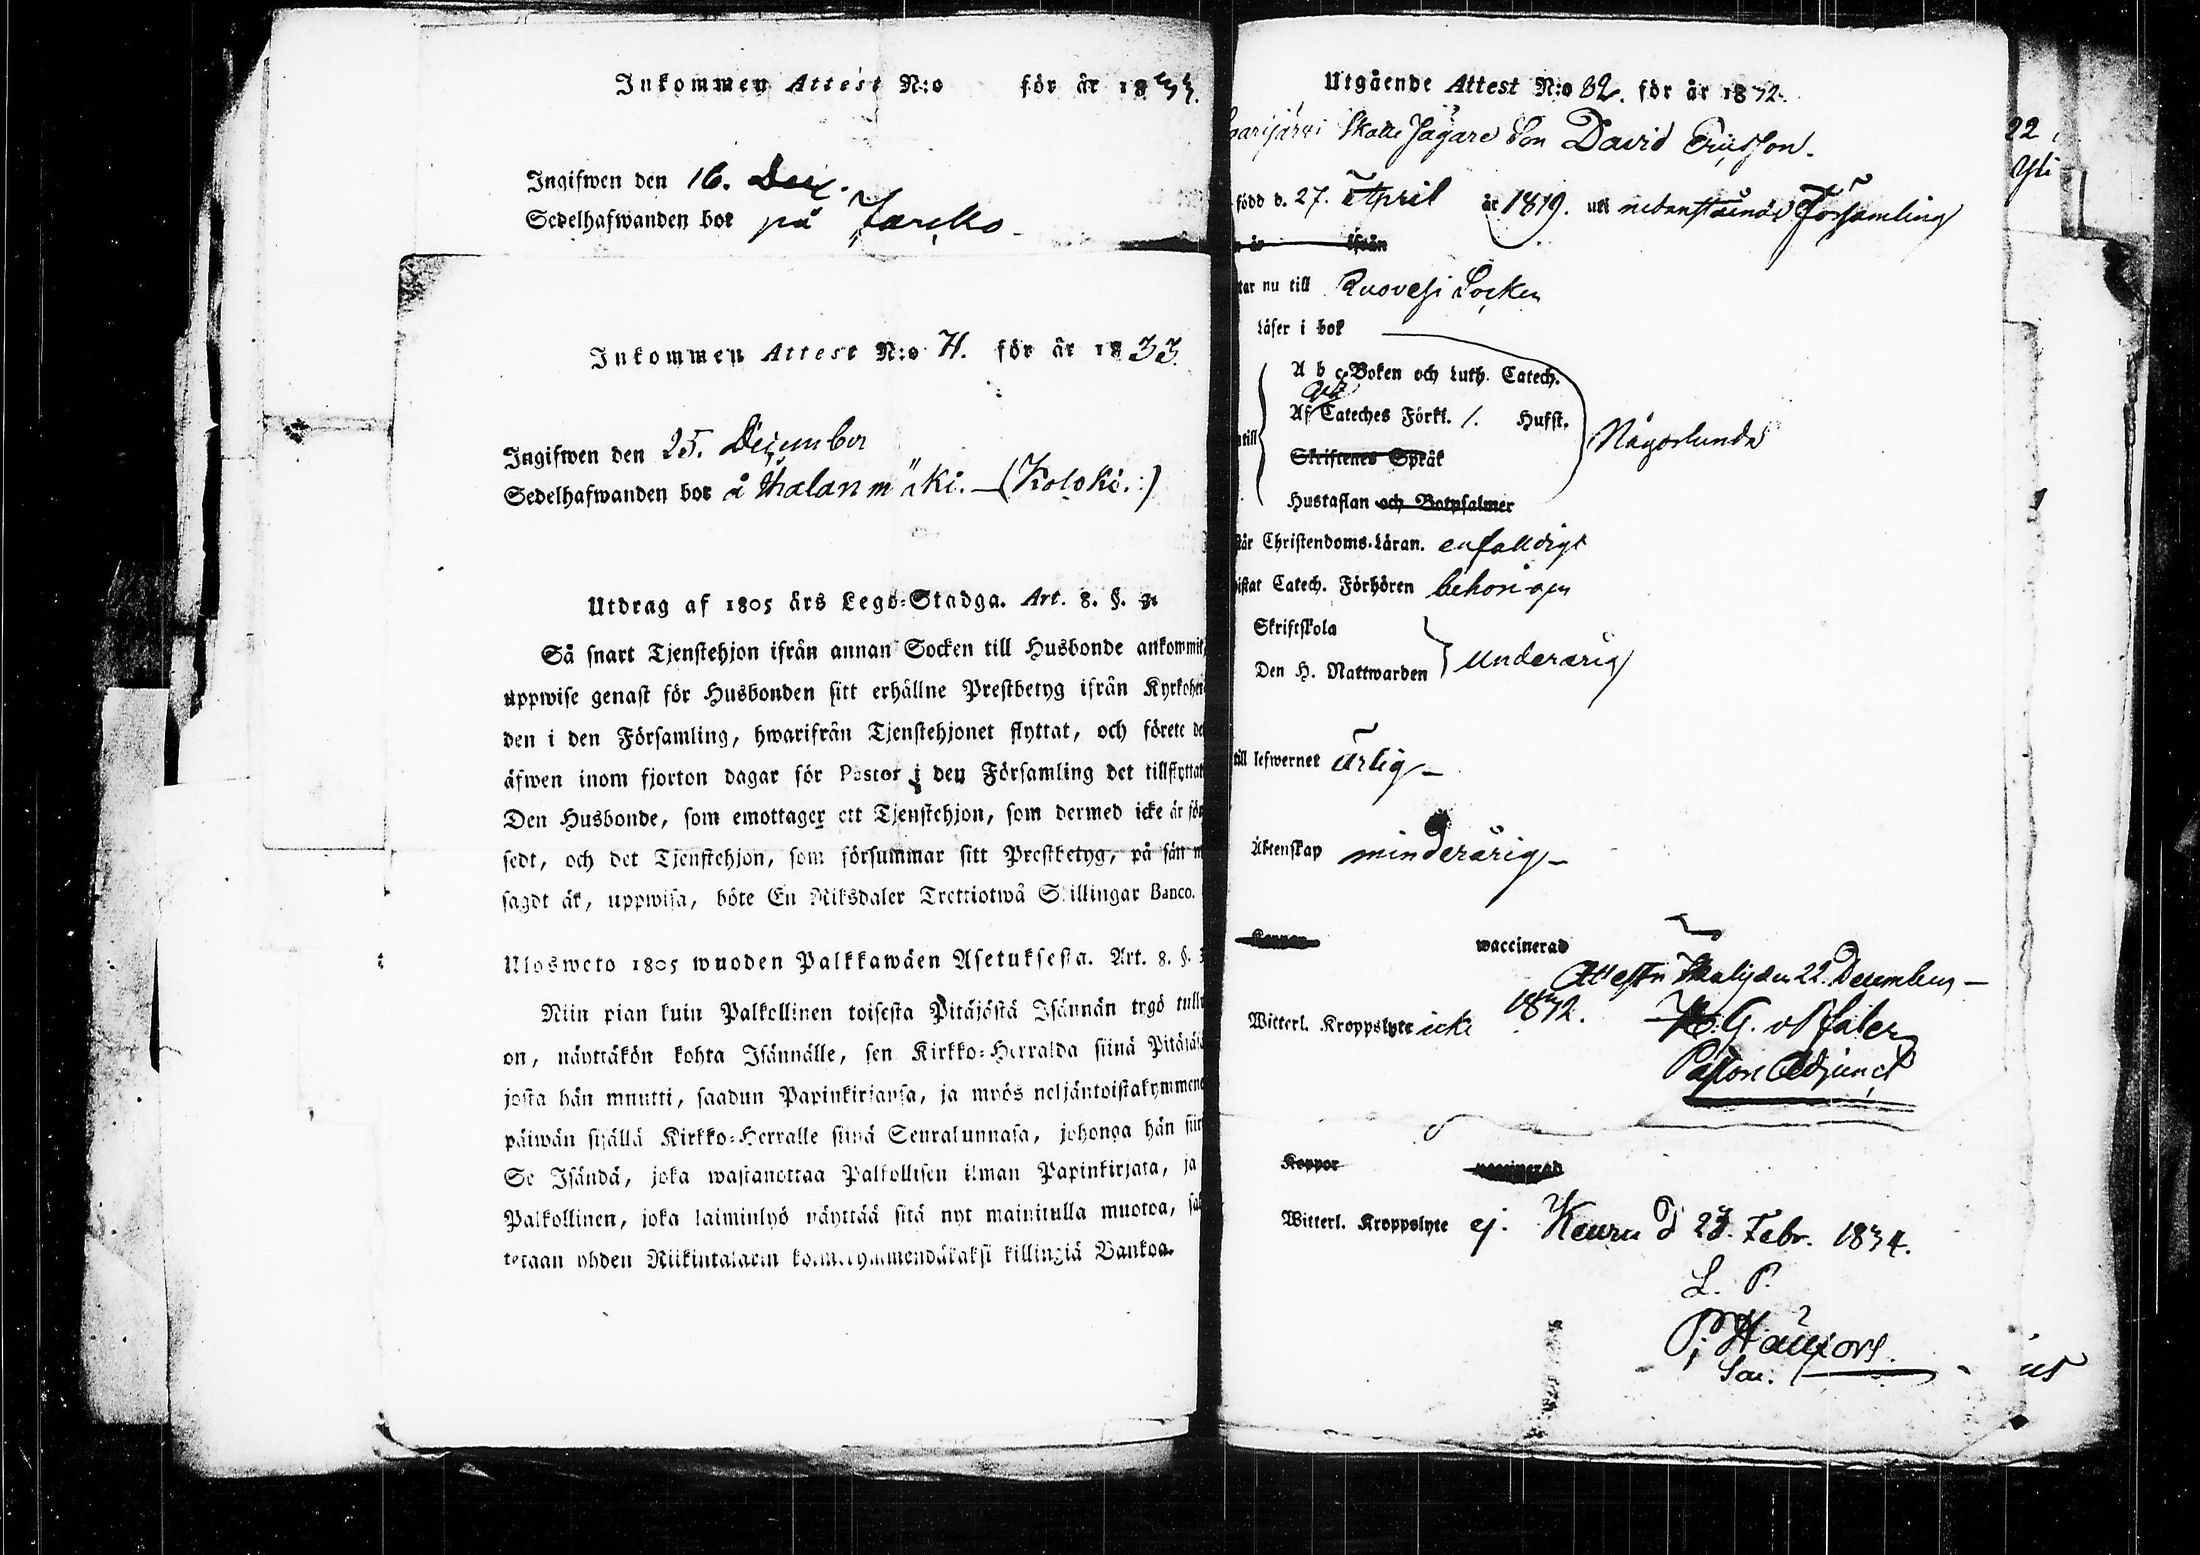 Inkommen Attest N:o för år 1833.
Ingifwen den 16. Dec.
Sedelhafwanden bor på
Inkommen Attest N:o 71. för år 1833.
Ingifwen den 25. December
Sedelhafwanden bor å
Utdrag af 1805 års Lego-Stadga. Art. 8. §. 3.
Så snart Tjenstehjon ifrån annan Socken till Husbonde ankommit,
uppwise genast för Husbonden sitt erhållne Prestbetyg ifrån Kyrkoher-
den i den Församling, hwarifrån Tjenstehjonet flyttat, och förete de
äfwen inom fjorton dagar för Pastor i den Församling det tillflyttat
Den Husbonde, som emottager ett Tjenstehjon, som dermed icke är för
sedt, och det Tjenstehjon, som försummar sitt Prestbetyg, på sätt
sagdt är, uppwisa, böte En Riksdaler Trettiotwå Skillingar Banco.
Ulosweto 1805 wuoden Palkkawäen Asetuksesta. Art. 8. §.
Niin pian kuin Palkollinen toisesta Pitäjästä Isännän tygö tullu
on, näyttäkön kohta Isännälle, sen Kirkko-Herralda siinä Pitäjäs
josta hän muutti, saadun Papinkirjansa, ja myös neljäntoistakymmene
päiwän sisällä Kirkko-Herralle siinä Seurakunnasa, johonga hän siir
Se Isändä, joka wastanottaa Palkollisen ilman Papinkirjata, ja
Palkollinen, joka laiminlyö näyttää sitä nyt mainitulla muotoa, sa
tetaan yhden Riikintalarin kolmekymmendäkaksi killingiä Bankoa.
Utgående Attest N:o 82. för år 1832.
Skatte Jägare Son David Ericsson.
född d. 27. April år 1819. uti Församling
år ifrån
tar nu till Ruovesi Socken
Läser i bok
A b c-Boken och Luth. Catech.
Af Cateches Förkl. 1. Hufst.
till Någorlunda
Skriftenes Språk
Hustaflan och Botpsalmer
står Christendoms-Läran. enfalldigt
wistat Catech. Förhören behörigen
Skriftskola
Den H. Nattwarden underårig
till lefwernet ärlig
Äktenskap minderårig
Koppor waccinerad
den 22. December
1832.
Witterl. Kroppslyte icke
Pastors Adjunct
Koppor waccinerad
Witterl. Kroppslyte ej. Keuru d 23. Febr. 1834.
L. P.
22